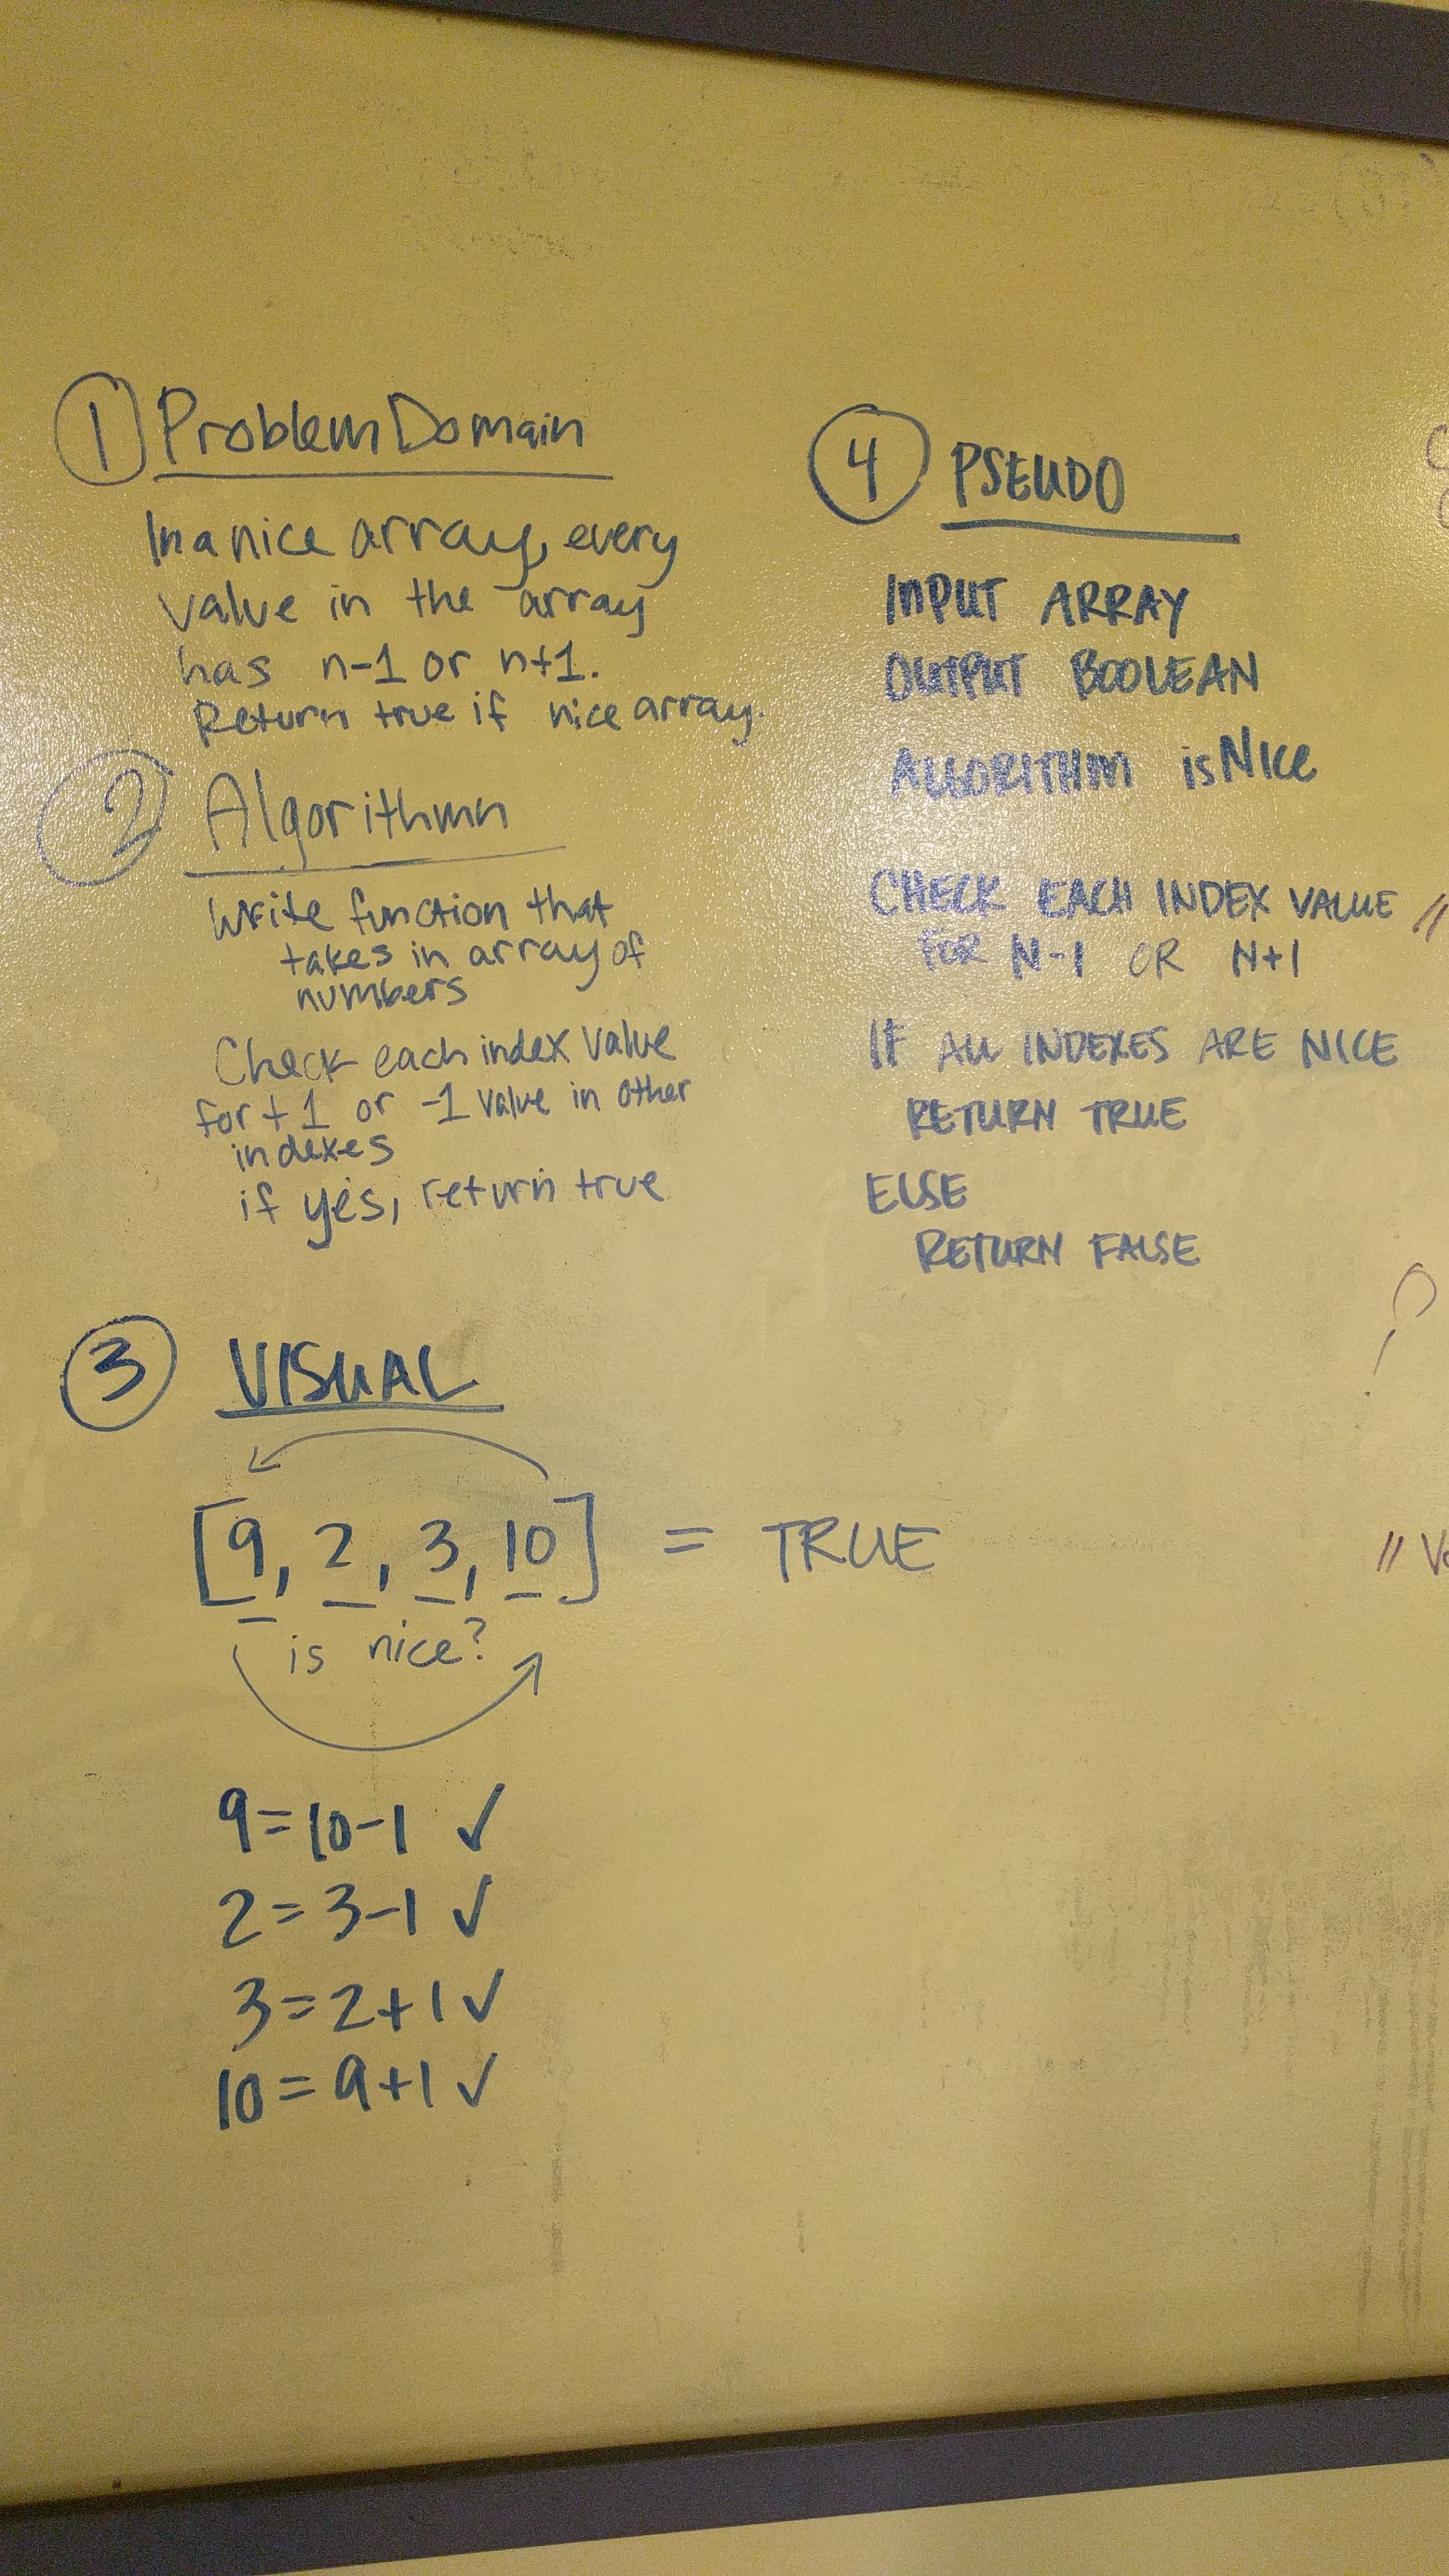 1 Problem Domain
In a nice array, every
value in the array
has n-1 or n+1.
Return true if nice array.
2 Algorithmn
Write function that
takes in array of
numbers
Check each index value
for +1 or -1 value in other
indexes
if yes, return true
3 VISUAL
[9, 2, 3, 10] = TRUE
is nice?
9=10-1 ✓
2=3-1 ✓
3=2+1 ✓
10=9+1 ✓
4 PSEUDO
INPUT ARRAY
OUTPUT BOOLEAN
ALGORITHM isNice
CHECK EACH INDEX VALUE //
FOR N-1 OR N+1
IF ALL INDEXES ARE NICE
RETURN TRUE
ELSE
RETURN FALSE
//